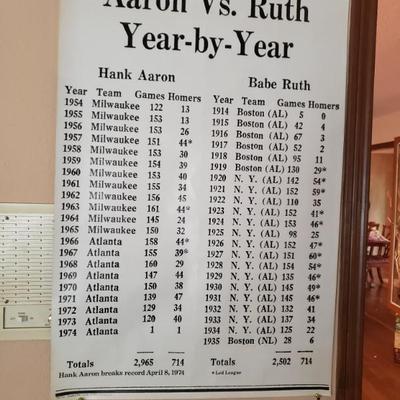 Aaron Vs. Ruth
Year-by-Year
Hank Aaron
Year Team Games Homers
1954 Milwaukee 122 13
1955 Milwaukee 153 13
1956 Milwaukee 153 26
1957 Milwaukee 151 44*
1958 Milwaukee 153 30
1959 Milwaukee 154 39
1960 Milwaukee 153 40
1961 Milwaukee 155 34
1962 Milwaukee 156 45
1963 Milwaukee 161 44*
1964 Milwaukee 145 24
1965 Milwaukee 150 32
1966 Atlanta 158 44*
1967 Atlanta 155 39*
1968 Atlanta 160 29
1969 Atlanta 147 44
1970 Atlanta 150 38
1971 Atlanta 139 47
1972 Atlanta 129 34
1973 Atlanta 120 40
1974 Atlanta 1 1
Totals 2,965 714
Hank Aaron breaks record April 8, 1974
Babe Ruth
Year Team Games Homers
1914 Boston (AL) 5 0
1915 Boston (AL) 42 4
1916 Boston (AL) 67 3
1917 Boston (AL) 52 2
1918 Boston (AL) 95 11
1919 Boston (AL) 130 29*
1920 N. Y. (AL) 142 54*
1921 N. Y. (AL) 152 59*
1922 N. Y. (AL) 110 35
1923 N. Y. (AL) 152 41*
1924 N. Y. (AL) 153 46*
1925 N. Y. (AL) 98 25
1926 N. Y. (AL) 152 47*
1927 N. Y. (AL) 151 60*
1928 N. Y. (AL) 154 54*
1929 N. Y. (AL) 135 46*
1930 N. Y. (AL) 145 49*
1931 N. Y. (AL) 145 46*
1932 N. Y. (AL) 132 41
1933 N. Y. (AL) 137 34
1934 N. Y. (AL) 125 22
1935 Boston (NL) 28 6
Totals 2,502 714
* Led League